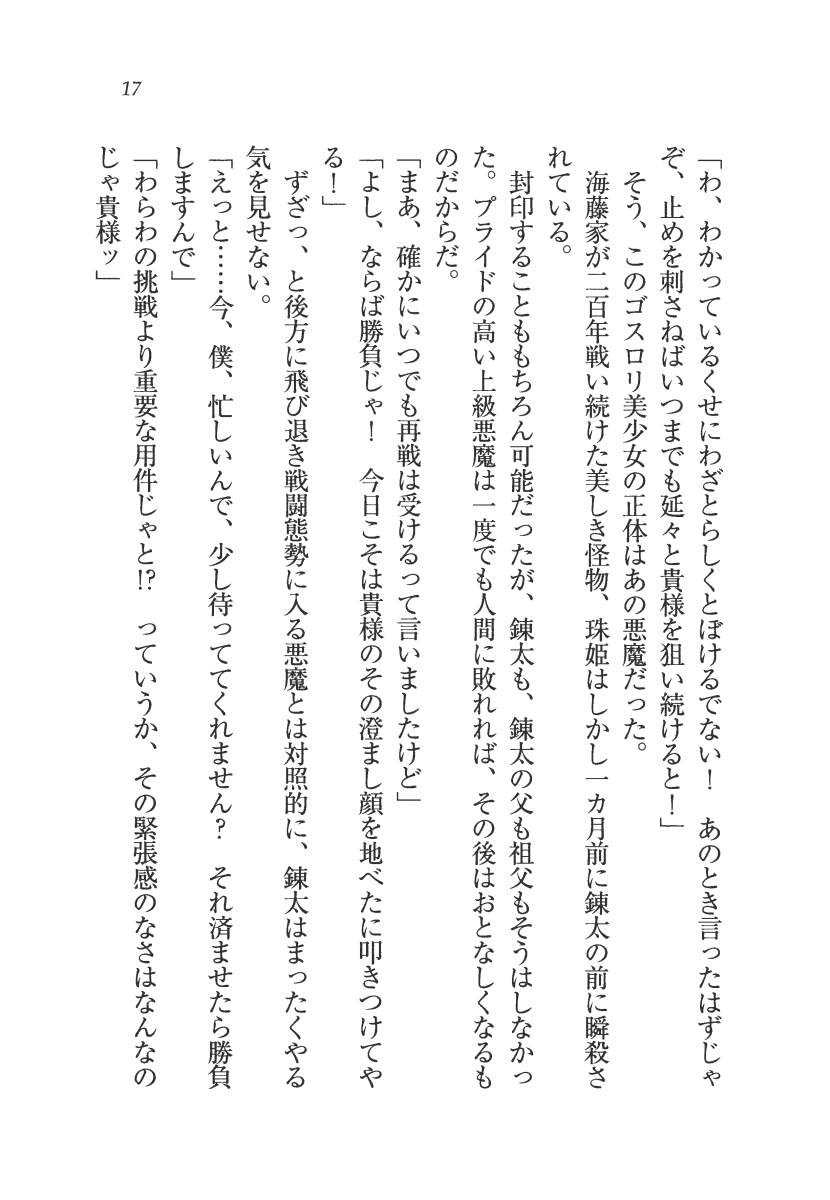 17
「わ、わかっているくせにわざとらしくとぼけるでない！　あのとき言ったはずじゃ
ぞ、止めを刺さねばいつまでも延々と貴様を狙い続けると！」
　そう、このゴスロリ美少女の正体はあの悪魔だった。
　海藤家が二百年戦い続けた美しき怪物、珠姫はしかし一カ月前に錬太の前に瞬殺さ
れている。
　封印することももちろん可能だったが、錬太も、錬太の父も祖父もそうはしなかっ
た。プライドの高い上級悪魔は一度でも人間に敗れれば、その後はおとなしくなるも
のだからだ。
「まあ、確かにいつでも再戦は受けるって言いましたけど」
「よし、ならば勝負じゃ！　今日こそは貴様のその澄まし顔を地べたに叩きつけてや
る！」
　ずざっ、と後方に飛び退き戦闘態勢に入る悪魔とは対照的に、錬太はまったくやる
気を見せない。
「えっと……今、僕、忙しいんで、少し待っててくれません？　それ済ませたら勝負
しますんで」
「わらわの挑戦より重要な用件じゃと!?　っていうか、その緊張感のなさはなんなの
じゃ貴様ッ」